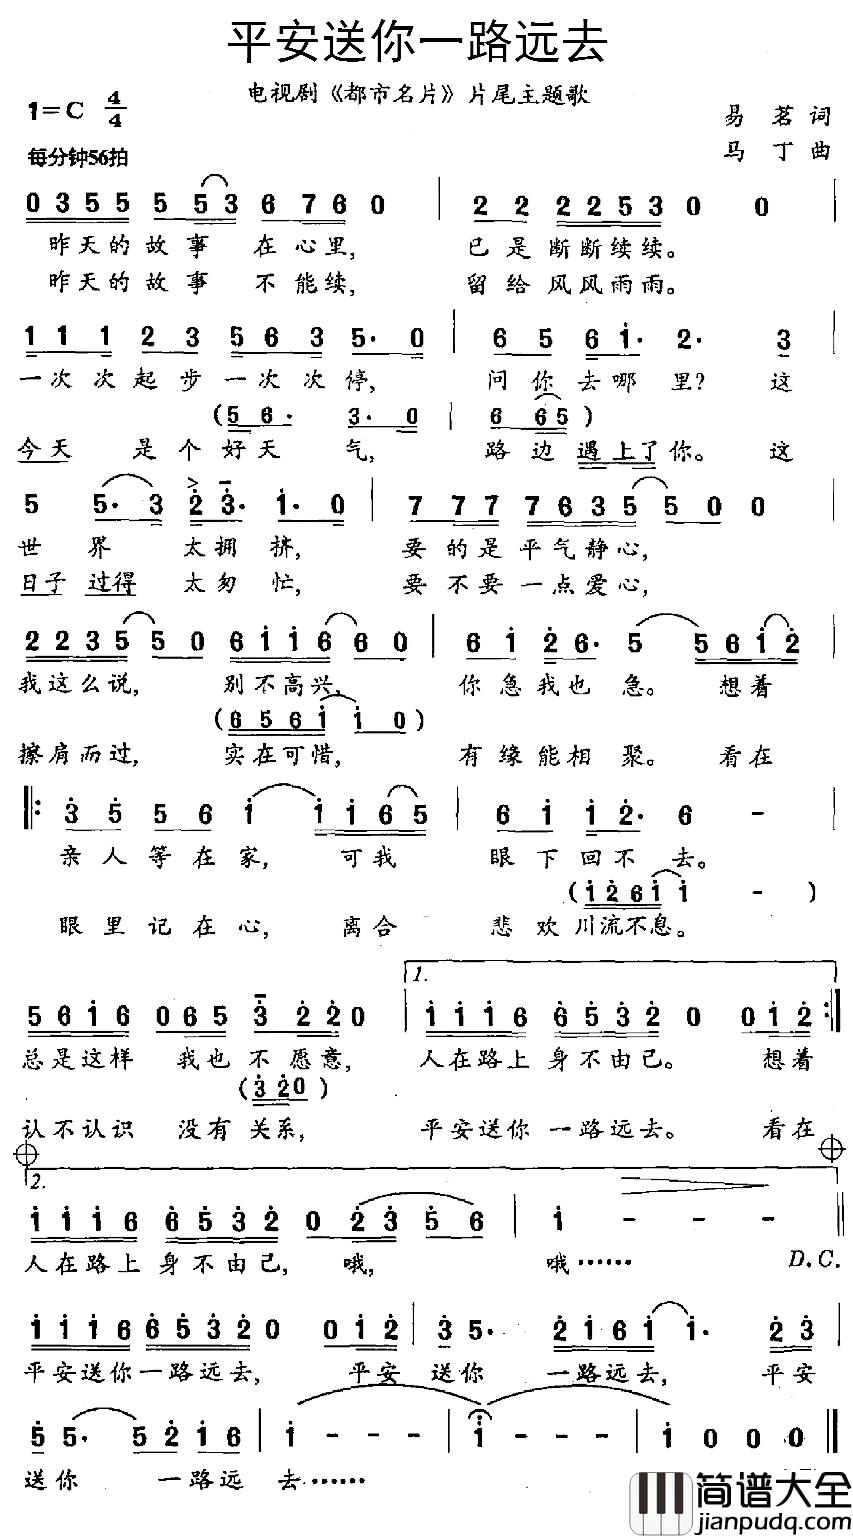 平安送你一路远去
电视剧《都市名片》片尾主题歌
1=C 4/4
易茗词
每分钟56拍
马丁曲
0 3 5 5 5 5 3 6 7 6 0 | 2 2 2 2 5 3 0 0 |
昨天的故事在心里, 已是断断续续。
昨天的故事不能续, 留给风风雨雨。
1 1 1 2 3 5 6 3 5· 0 | 6 5 6 1· 2· 3 |
一次次起步一次次停, 问你去哪里? 这
(5 6· 3· 0 | 6 6 5)
今天是个好天气, 路边遇上了你。这
5 5· 3 2 3· 1· 0 | 7 7 7 7 6 3 5 5 0 0 |
世界太拥挤, 要的是平气静心,
日子过得太匆忙, 要不要一点爱心,
2 2 3 5 5 0 6 1 1 6 6 0 | 6 1 2 6· 5 5 6 1 2 |
我这么说, 别不高兴, 你急我也急。想着
(6 5 6 1 1 0)
擦肩而过, 实在可惜, 有缘能相聚。看在
‖: 3 5 5 6 1 1 1 6 5 | 6 1 1 2· 6 - |
亲人等在家, 可我眼下回不去。
(1 2 6 1 1 - )
眼里记在心, 离合悲欢川流不息。
1.
5 6 1 6 0 6 5 3 2 2 0 | 1 1 1 6 6 5 3 2 0 0 1 2 :‖
总是这样我也不愿意, 人在路上身不由己。想着
(3 2 0)
认不认识没有关系, 平安送你一路远去。看在
2.
1 1 1 6 6 5 3 2 0 2 3 5 6 | 1 - - - ‖
人在路上身不由己, 哦, 哦…… D.C.
1 1 1 6 6 5 3 2 0 0 1 2 | 3 5· 2 1 6 1 1· 2 3 |
平安送你一路远去, 平安送你一路远去, 平安
5 5· 5 2 1 6 | 1 - - - | 1 - - - | 1 0 0 0 ‖
送你一路远去……
简谱大全
jianpudq.com